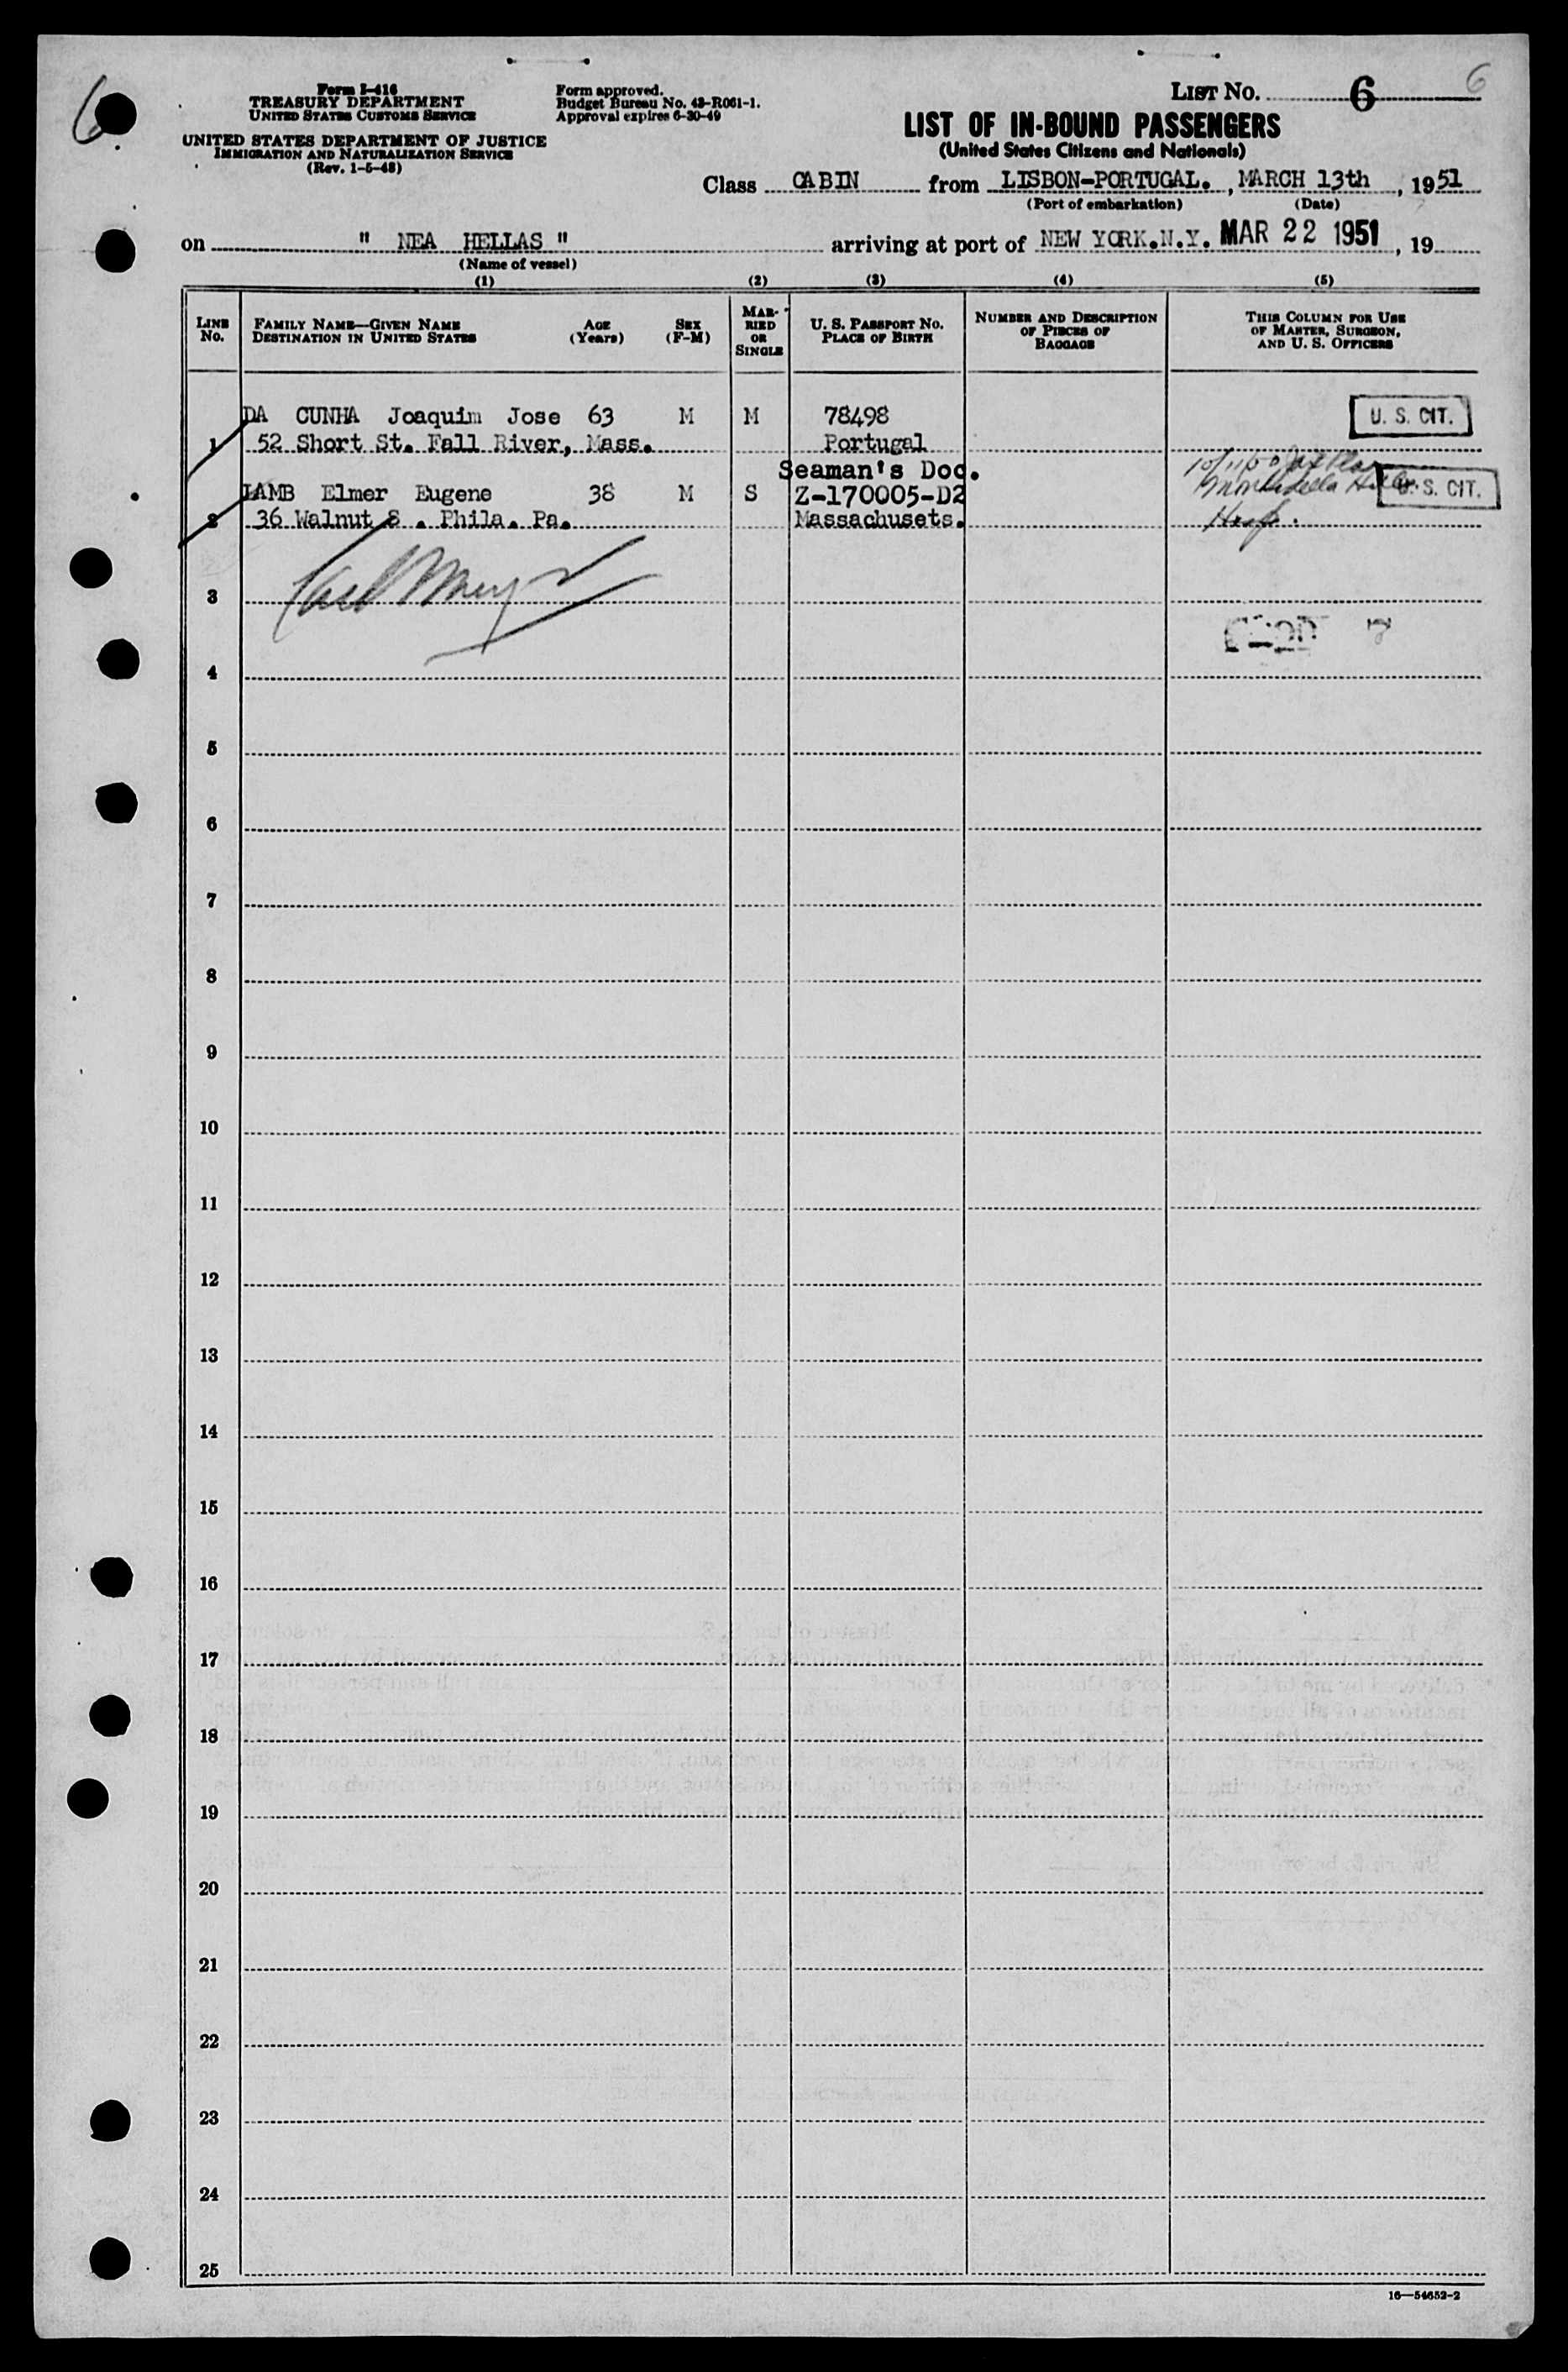 6
Form I-416
TREASURY DEPARTMENT
UNITED STATES CUSTOMS SERVICE
UNITED STATES DEPARTMENT OF JUSTICE
IMMIGRATION AND NATURALIZATION SERVICE
(Rev. 1-5-48)
Form approved.
Budget Bureau No. 43-R061-1.
Approval expires 6-30-49
LIST NO. 6 6
LIST OF IN-BOUND PASSENGERS
(United States Citizens and Nationals)
Class CABIN from LISBON-PORTUGAL. , MARCH 13th , 1951
(Port of embarkation) (Date)
on " NEA HELLAS " arriving at port of NEW YORK.N.Y. MAR 22 1951 , 19
(Name of vessel)
(1) (2) (3) (4) (5)
LINE NO. FAMILY NAME—GIVEN NAME DESTINATION IN UNITED STATES AGE (Years) SEX (F-M) MARRIED OR SINGLE U. S. PASSPORT NO. PLACE OF BIRTH NUMBER AND DESCRIPTION OF PIECES OF BAGGAGE THIS COLUMN FOR USE OF MASTER, SURGEON, AND U. S. OFFICERS
DA CUNHA Joaquim Jose 63 M M 78498 U. S. CIT.
1 52 Short St. Fall River, Mass. Portugal
Seaman's Doc.
LAMB Elmer Eugene 38 M S Z-170005-D2 U. S. CIT.
2 36 Walnut S . Phila. Pa. Massachusets.
3
4
5
6
7
8
9
10
11
12
13
14
15
16
17
18
19
20
21
22
23
24
25
16—54652-2